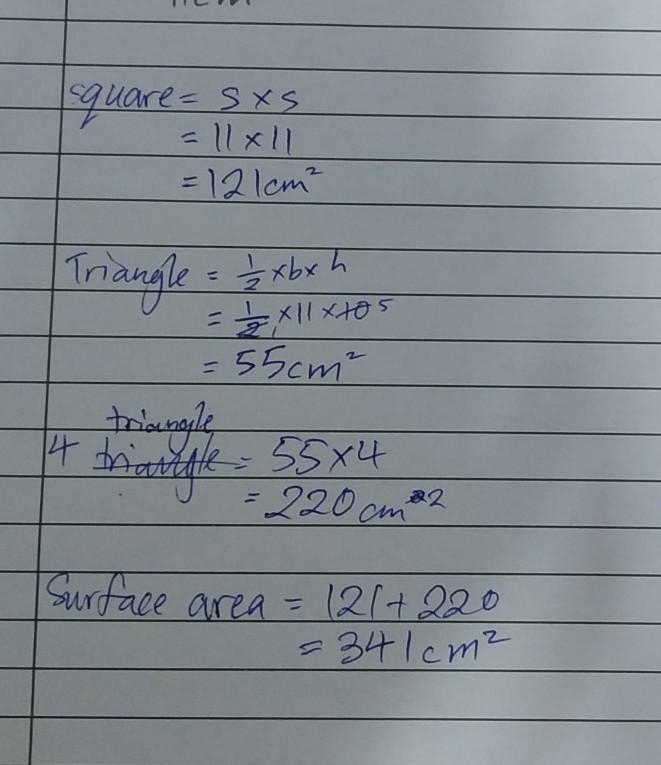 square = s × s
= 11 × 11
= 121cm²
Triangle = 1/2 × b × h
= 1/2 1 × 11 × 10 5
= 55cm²
triangle
4 triangle = 55 × 4
= 220 cm 2
Surface area = 121 + 220
= 341cm²